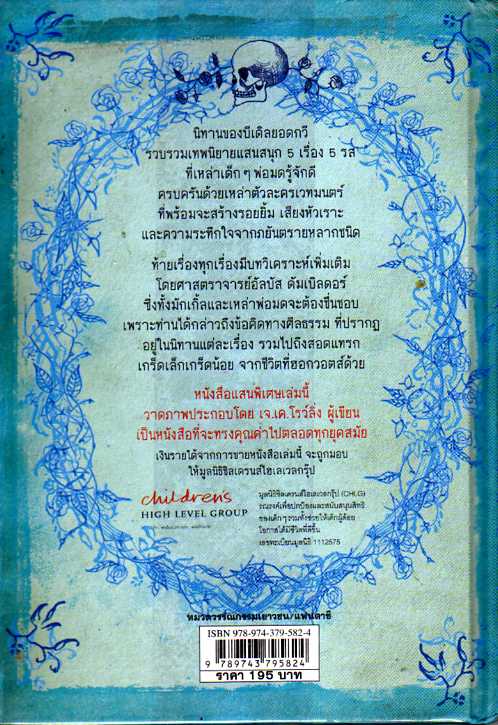 นิทานของบีเดิลยอดกวี
รวบรวมเทพนิยายแสนสนุก 5 เรื่อง 5 รส
ที่เหล่าเด็กๆ พ่อมดรู้จักดี
ครบครันด้วยเหล่าตัวละครเวทมนตร์
ที่พร้อมจะสร้างรอยยิ้ม เสียงหัวเราะ
และความระทึกใจจากภยันตรายหลากชนิด
ท้ายเรื่องทุกเรื่องมีบทวิเคราะห์เพิ่มเติม
โดยศาสตราจารย์อัลบัส ดัมเบิลดอร์
ซึ่งทั้งมักเกิ้ลและเหล่าพ่อมดจะต้องชื่นชอบ
เพราะท่านได้กล่าวถึงข้อคิดทางศีลธรรม ที่ปรากฏ
อยู่ในนิทานแต่ละเรื่อง รวมไปถึงสอดแทรก
เกร็ดเล็กเกร็ดน้อย จากชีวิตที่ฮอกวอตส์ด้วย
หนังสือแสนพิเศษเล่มนี้
วาดภาพประกอบโดย เจ.เค.โรว์ลิ่ง ผู้เขียน
เป็นหนังสือที่จะทรงคุณค่าไปตลอดทุกยุคสมัย
เงินรายได้จากการขายหนังสือเล่มนี้ จะถูกมอบ
ให้มูลนิธิชิลเดรนส์ไฮเลเวลกรุ๊ป
children's
HIGH LEVEL GROUP
มูลนิธิชิลเดรนส์ไฮเลเวลกรุ๊ป (CHLG)
รณรงค์เพื่อปกป้องและสนับสนุนสิทธิ
ของเด็กๆ รวมทั้งช่วยให้เด็กผู้ด้อย
โอกาสได้มีชีวิตที่ดีขึ้น
เลขทะเบียนมูลนิธิ 1112575
หมวดวรรณกรรมเยาวชน/แฟนตาซี
ISBN 978-974-379-582-4
9 789743 795824
ราคา 195 บาท